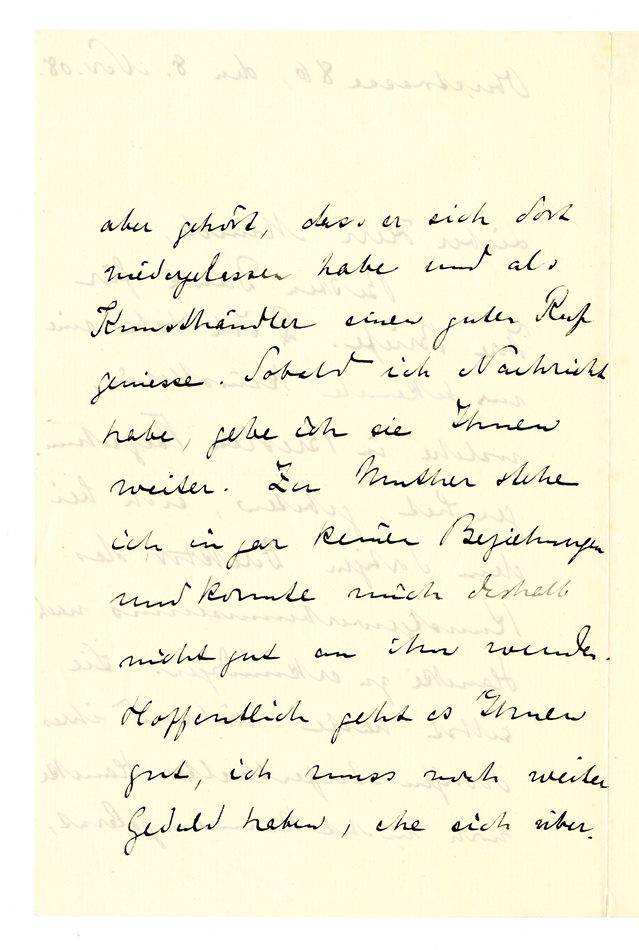 aber gehört, dass er sich dort
niedergelassen habe und als
Kunsthändler einen guten Ruf
geniesse. Sobald ich Nachricht
habe, gebe ich sie Ihnen
weiter. Zu Muther stehe
ich in gar keinen Beziehungen
und konnte mich deshalb
nicht gut an ihn wenden.
Hoffentlich geht es Ihnen
gut, ich muss noch weiter
Geduld haben, ehe sich über-